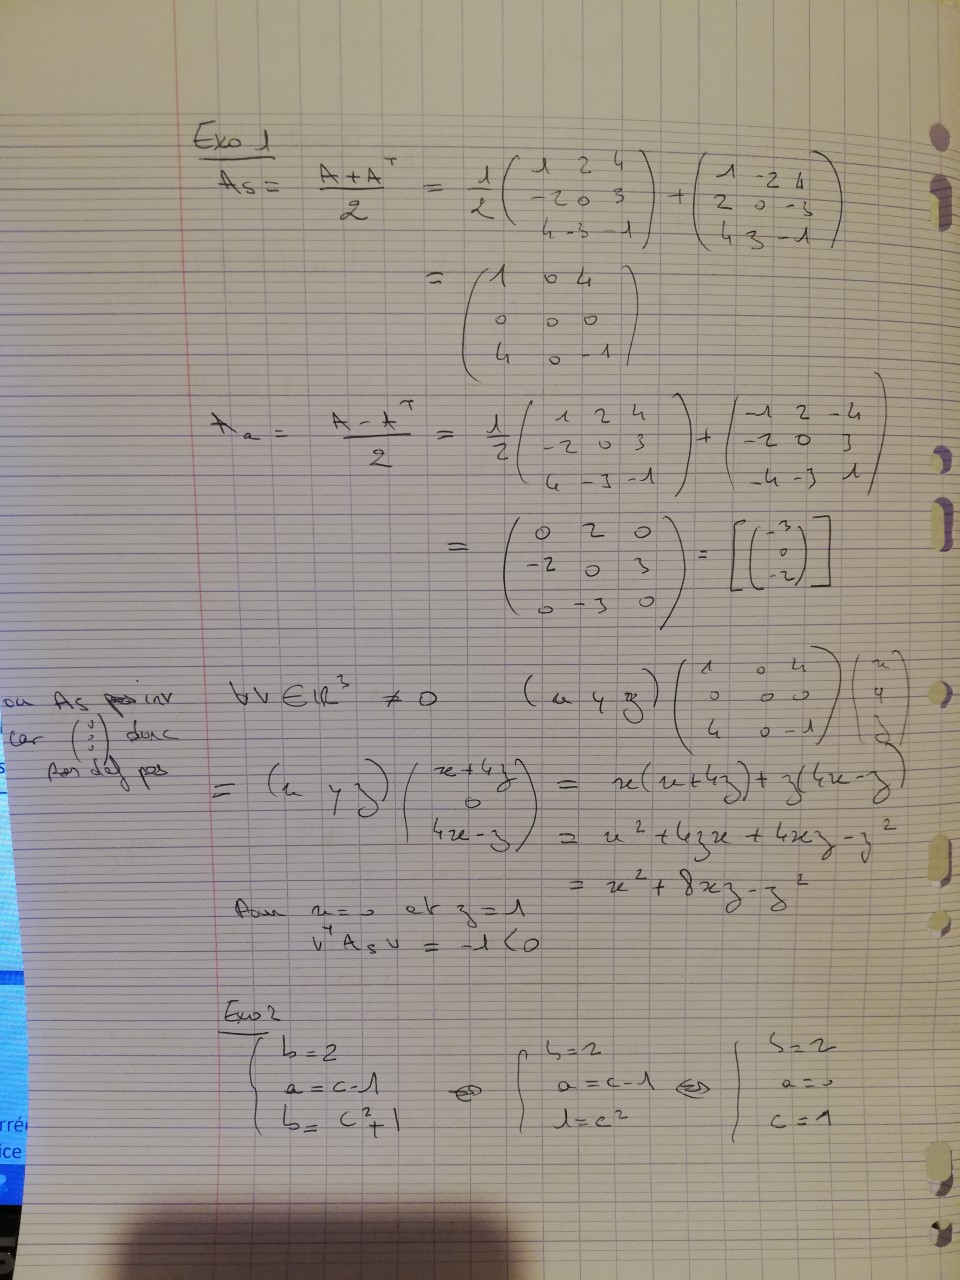 Exo 1
As = (A + A^T)/2 = 1/2 (1 2 4 ; -2 0 3 ; 4 -3 -1) + (1 -2 4 ; 2 0 -3 ; 4 3 -1)
= (1 0 4 ; 0 0 0 ; 4 0 -1)
A_a = (A - A^T)/2 = 1/2 (1 2 4 ; -2 0 3 ; 4 -3 -1) + (-1 2 -4 ; -2 0 3 ; -4 -3 1)
= (0 2 0 ; -2 0 3 ; 0 -3 0) = [(-3 ; 0 ; -2)]
ou As inv
car donc
def pos
∀v ∈ ℝ^3 ≠ 0 (x y z) (1 0 4 ; 0 0 0 ; 4 0 -1) (x ; y ; z)
= (x y z) (x+4z ; 0 ; 4x-z) = x(x+4z) + z(4x-z)
= x^2 + 4zx + 4xz - z^2
= x^2 + 8xz - z^2
Pour x=0 et z=1
v^T As v = -1 < 0
Exo 2
{ b=2 ; a=c-1 ; b=c^2+1 ⇔ { b=2 ; a=c-1 ; 1=c^2 ⇔ { b=2 ; a=0 ; c=1
rré
ice